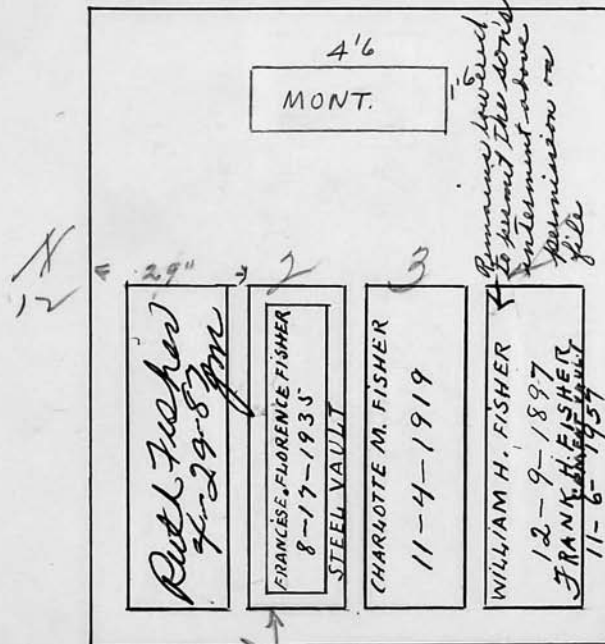 4'6
MONT.
1'6
Remains lowered
to permit the son's
interment above
permission on
file
12
29"
2
3
Ruth Fisher
4-29-87
FRANCES E. FLORENCE FISHER
8-17-1935
STEEL VAULT
CHARLOTTE M. FISHER
11-4-1919
WILLIAM H. FISHER
12-9-1897
FRANK H. FISHER
CEMENT VAULT
11-6-1957